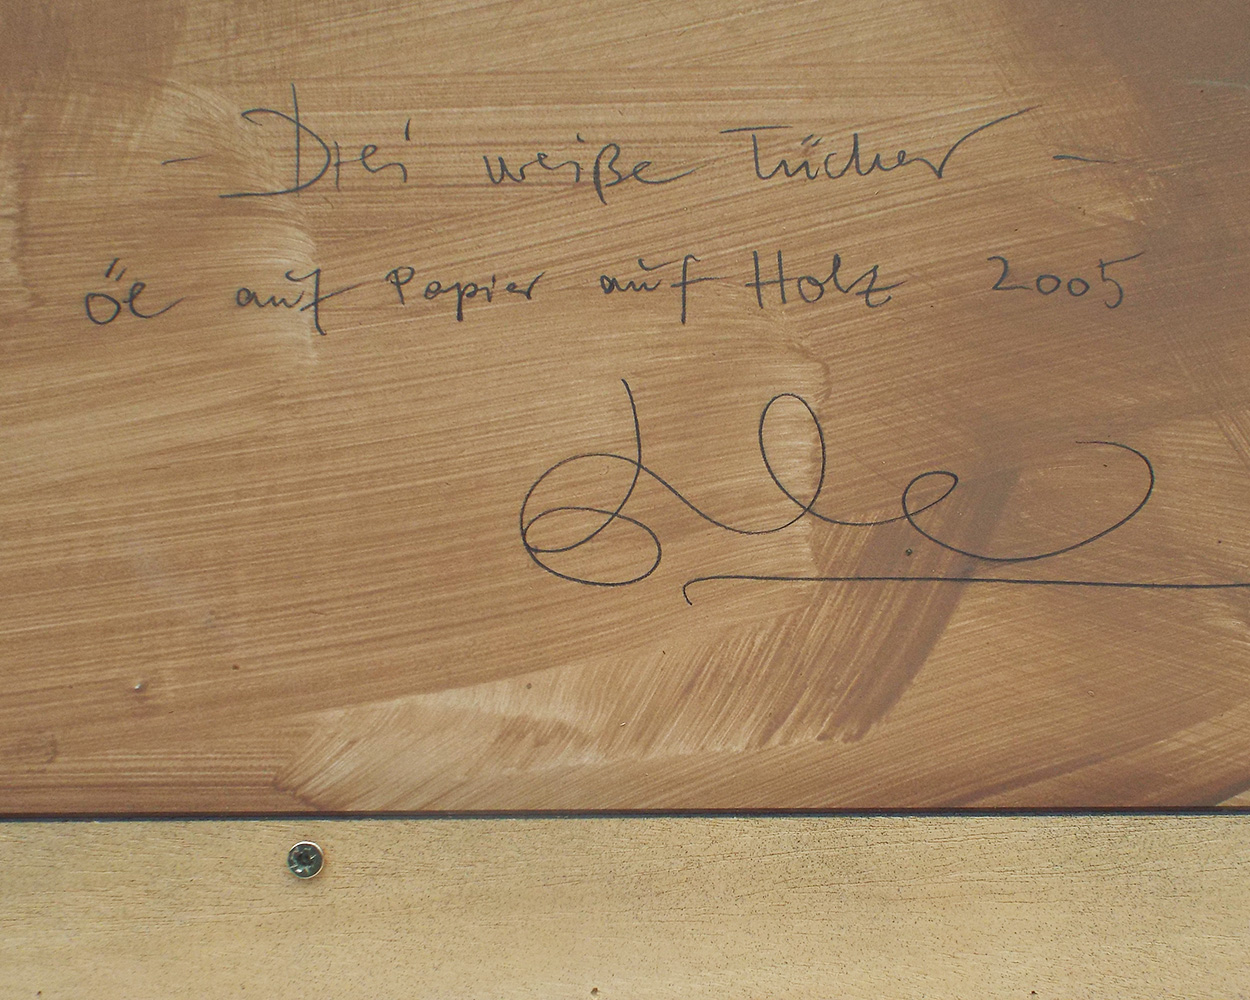 - Drei weiße Tücher -
Öl auf Papier auf Holz 2005